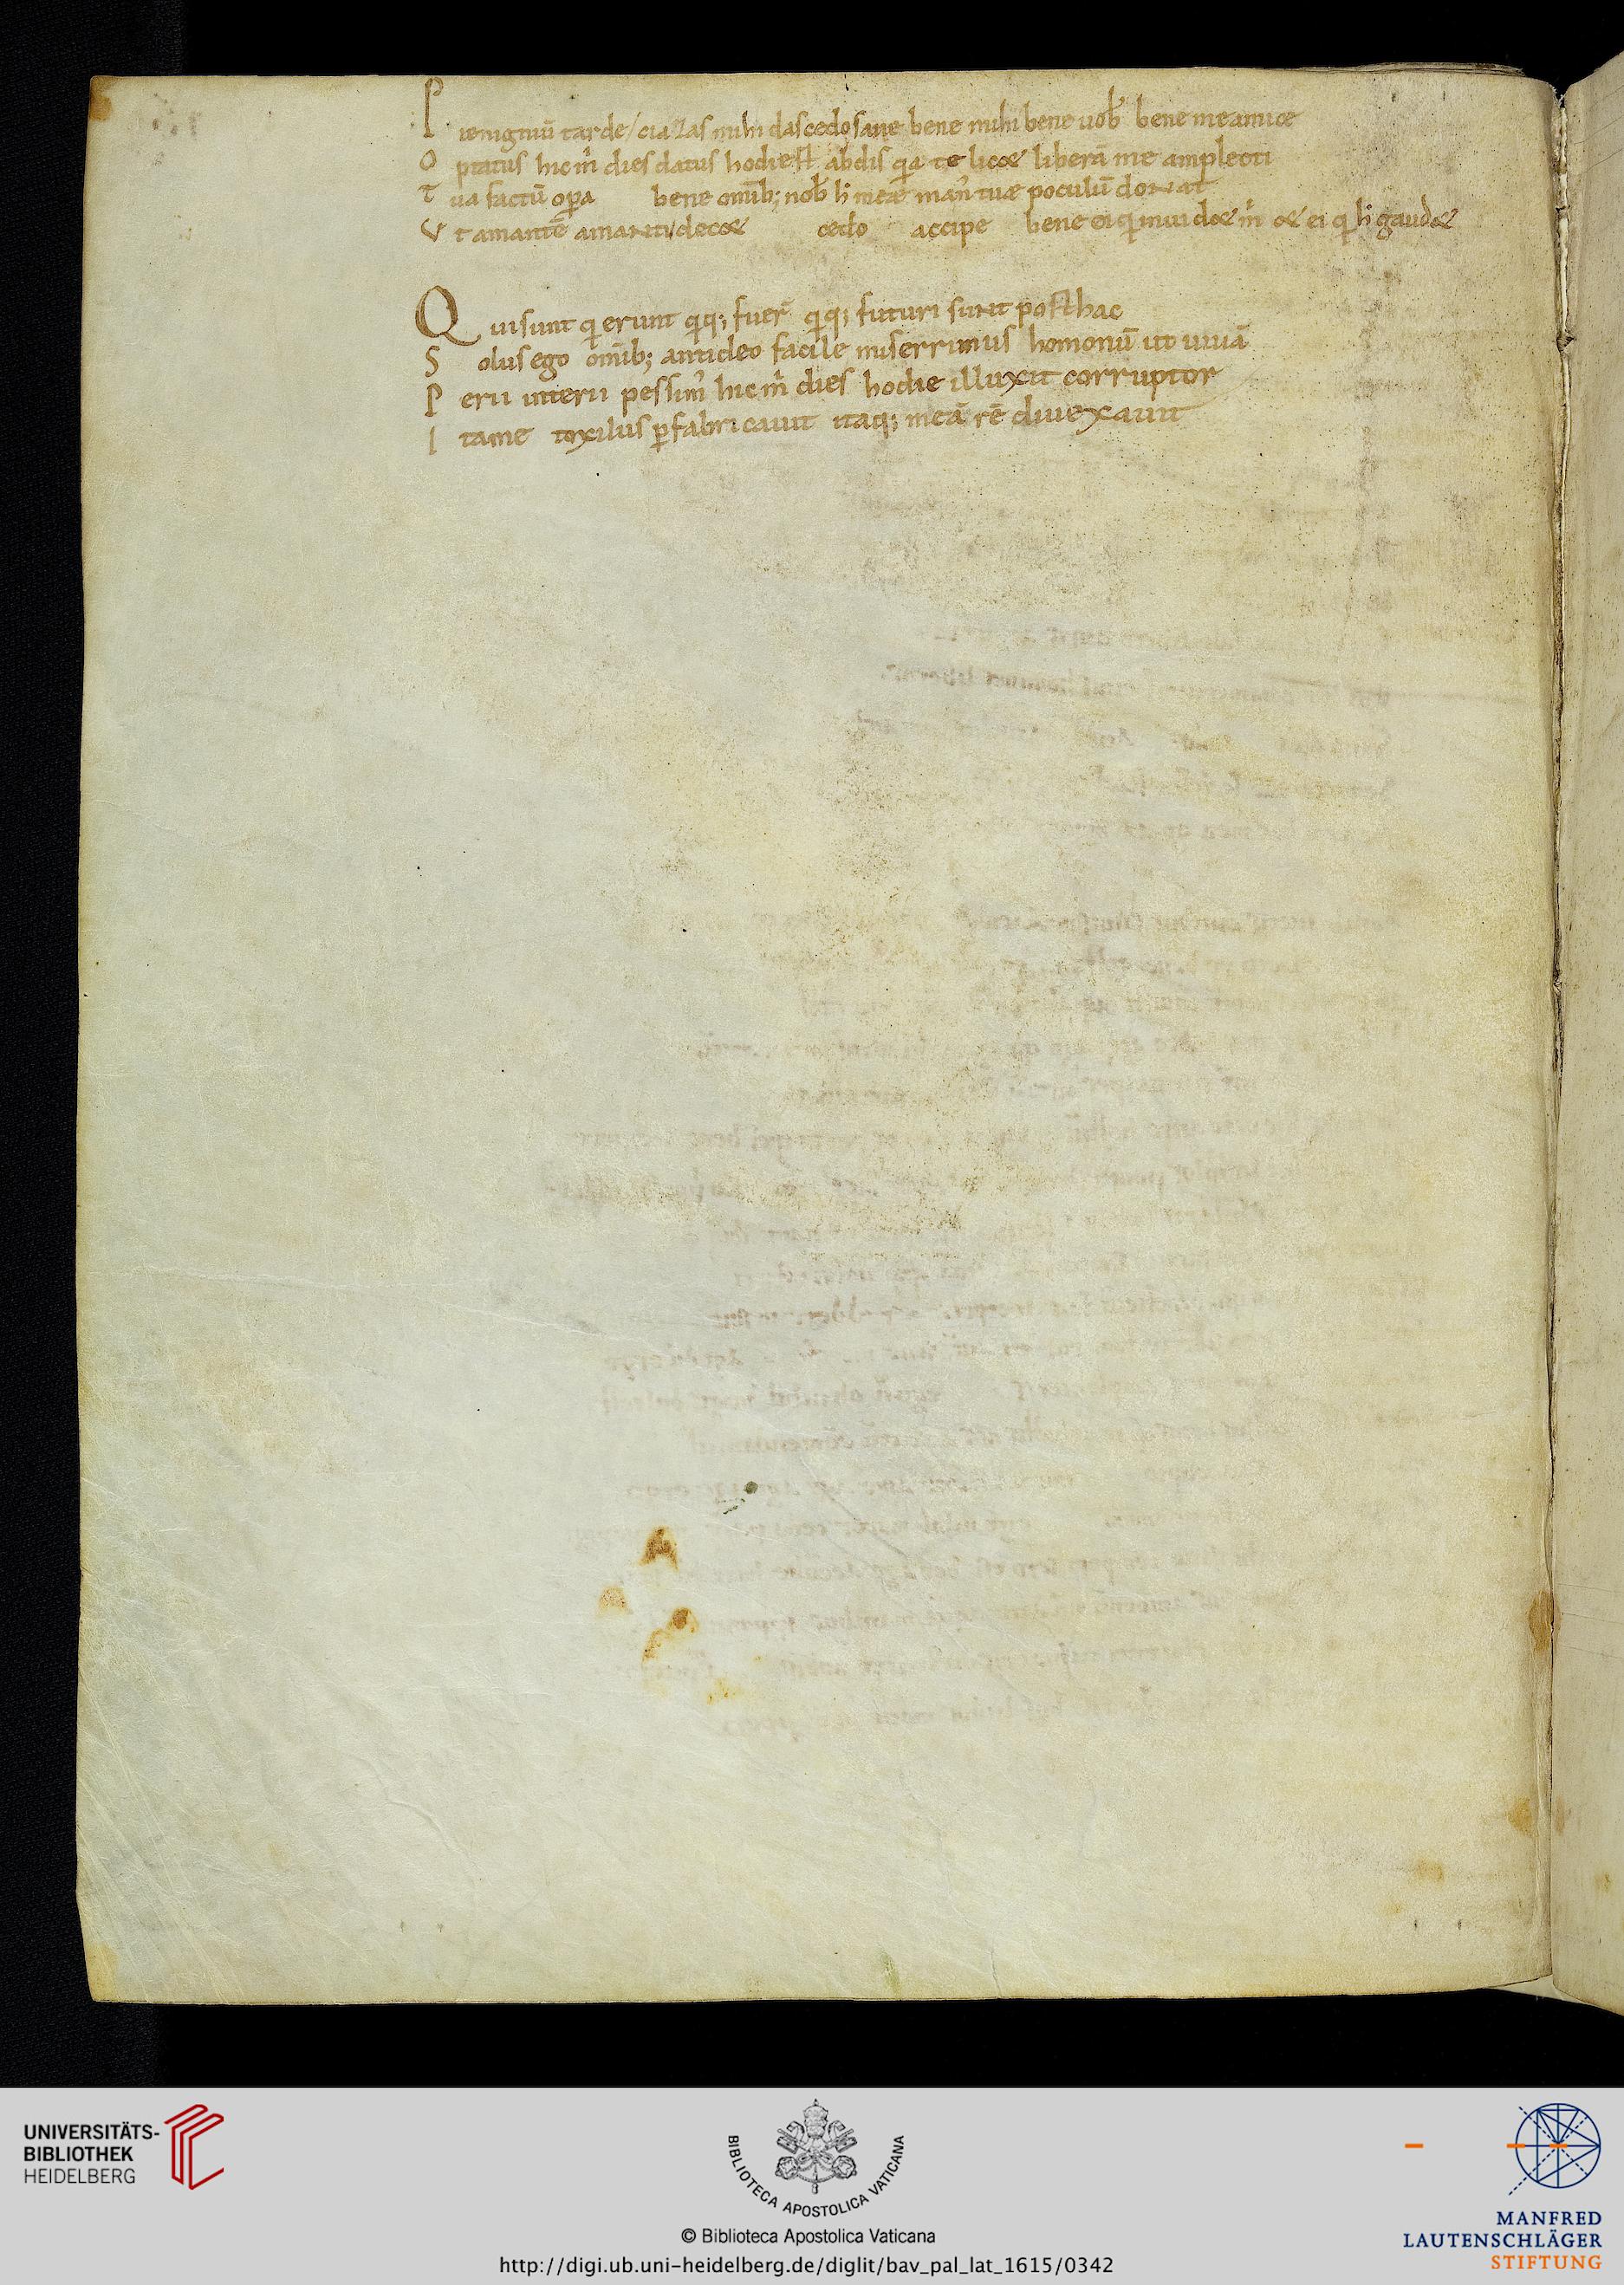 P ægniũ tarde cia2as mihi das cedo sane bene mihi bene uob̃ bene meæ amicæ
O ptatus hic m̃ dies datus hodie st ab dis q̃a te licæ liberã me amplecti
T ua factũ op̃a bene omĩb; nob̃ h̃ meæ man̾ tuæ poculũ donat
V t amantẽ amanti decæ cedo accipe bene ei qi m̃ inuidæ m̃ æ ei qi h̃ gaudæ
Q ui sunt qi erunt qiq; fuer̃ qiq; futuri sunt posthac
S olus ego omĩb; antideo facile miserrimus homonũ ut uiuã
P erii interii pessim̾ hic m̃ dies hodie illuxit corruptor
I ta me toxilus p̃fabricauit itaq; meã rẽ diuexauit
UNIVERSITÄTS-
BIBLIOTHEK
HEIDELBERG
BIBLIOTECA APOSTOLICA VATICANA
© Biblioteca Apostolica Vaticana
http://digi.ub.uni-heidelberg.de/diglit/bav_pal_lat_1615/0342
MANFRED
LAUTENSCHLÄGER
STIFTUNG